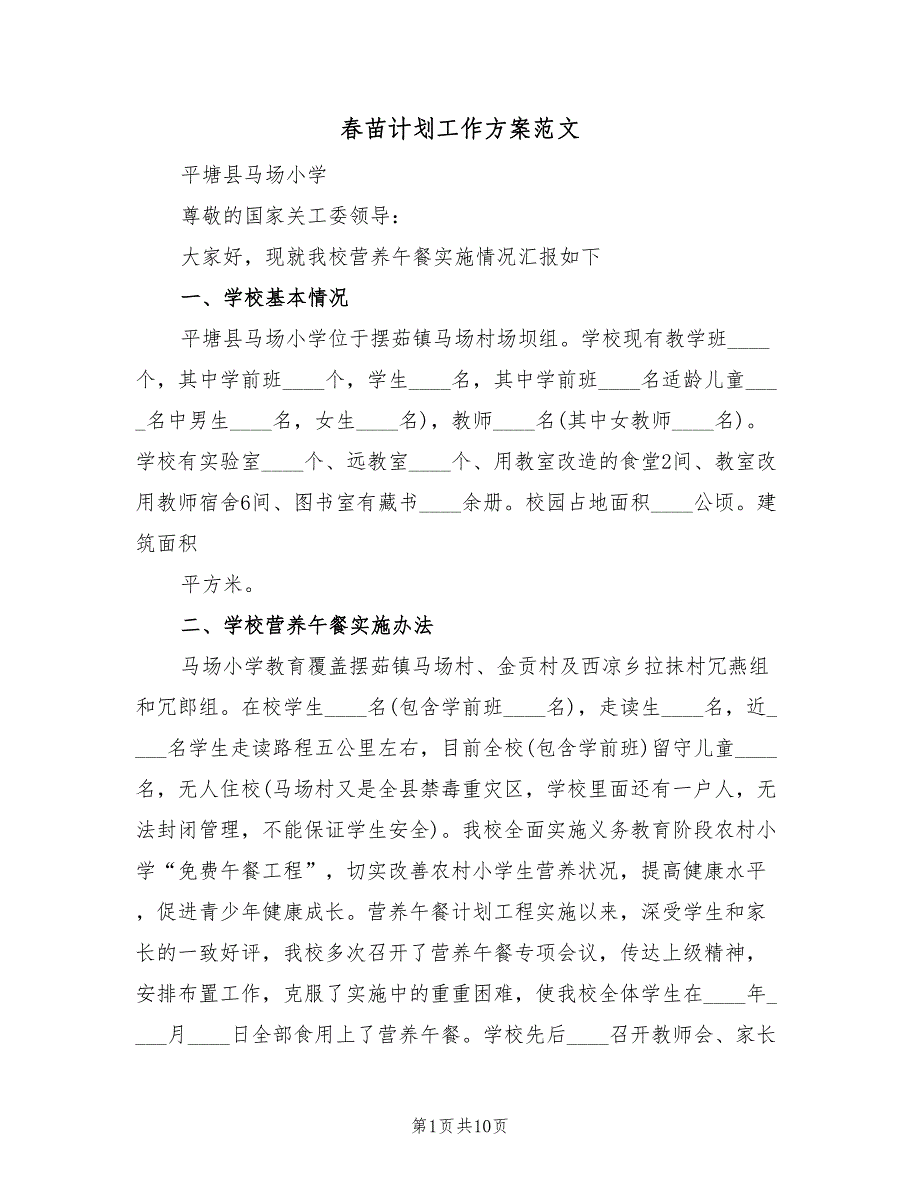 春苗计划工作方案范文
平塘县马场小学
尊敬的国家关工委领导：
大家好，现就我校营养午餐实施情况汇报如下
一、学校基本情况
平塘县马场小学位于摆茹镇马场村场坝组。学校现有教学班____
个，其中学前班____个，学生____名，其中学前班____名适龄儿童___
_名中男生____名，女生____名)，教师____名(其中女教师____名)。
学校有实验室____个、远教室____个、用教室改造的食堂2间、教室改
用教师宿舍6间、图书室有藏书____余册。校园占地面积____公顷。建
筑面积
平方米。
二、学校营养午餐实施办法
马场小学教育覆盖摆茹镇马场村、金贡村及西凉乡拉抹村冗燕组
和冗郎组。在校学生____名(包含学前班____名)，走读生____名，近_
___名学生走读路程五公里左右，目前全校(包含学前班)留守儿童____
名，无人住校(马场村又是全县禁毒重灾区，学校里面还有一户人，无
法封闭管理，不能保证学生安全)。我校全面实施义务教育阶段农村小
学“免费午餐工程”，切实改善农村小学生营养状况，提高健康水平
，促进青少年健康成长。营养午餐计划工程实施以来，深受学生和家
长的一致好评，我校多次召开了营养午餐专项会议，传达上级精神，
安排布置工作，克服了实施中的重重困难，使我校全体学生在____年_
___月____日全部食用上了营养午餐。学校先后____召开教师会、家长
第1页共10页